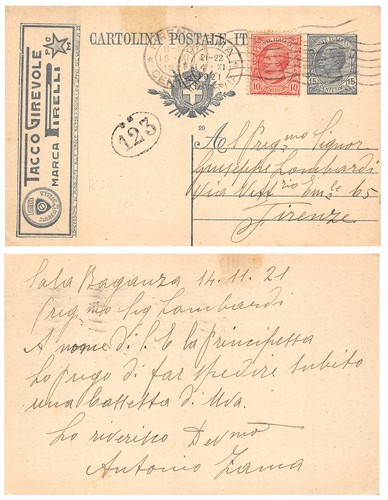 CARTOLINA POSTALE IT
TACCO GIREVOLE
MARCA PIRELLI
10 10
15 15
20
123
Al Preg.mo Signor
Giuseppe Lombardi
Via Vitt.rio Em.le 65
Firenze
Sala Baganza 14.11.21
Preg.mo Sig Lombardi
A nome di S. E la Principessa
Lo prego di far spedire subito
una Cassetta di Uva.
Lo riverisco Dev.mo
Antonio Zama